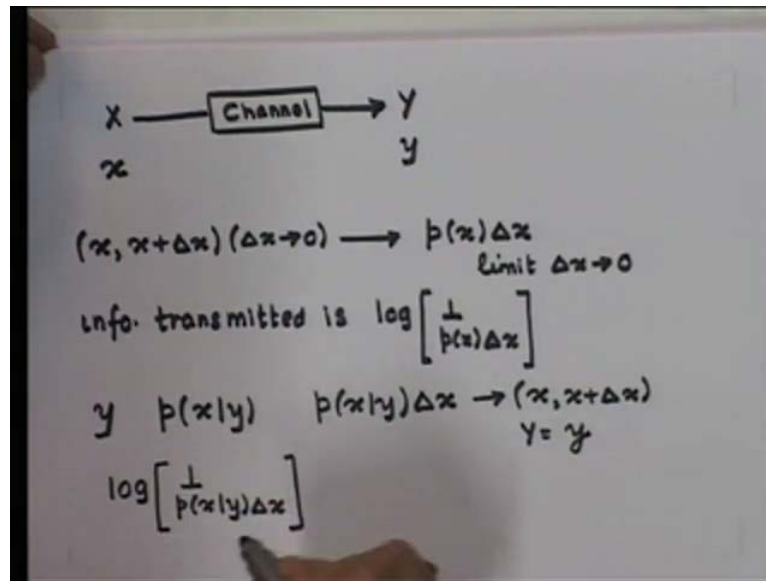 X → Channel → Y
x y
(x, x+Δx) (Δx→0) → p(x)Δx
limit Δx→0
info. transmitted is log[1/p(x)Δx]
y p(x|y) p(x|y)Δx → (x, x+Δx)
Y = y
log[1/p(x|y)Δx]